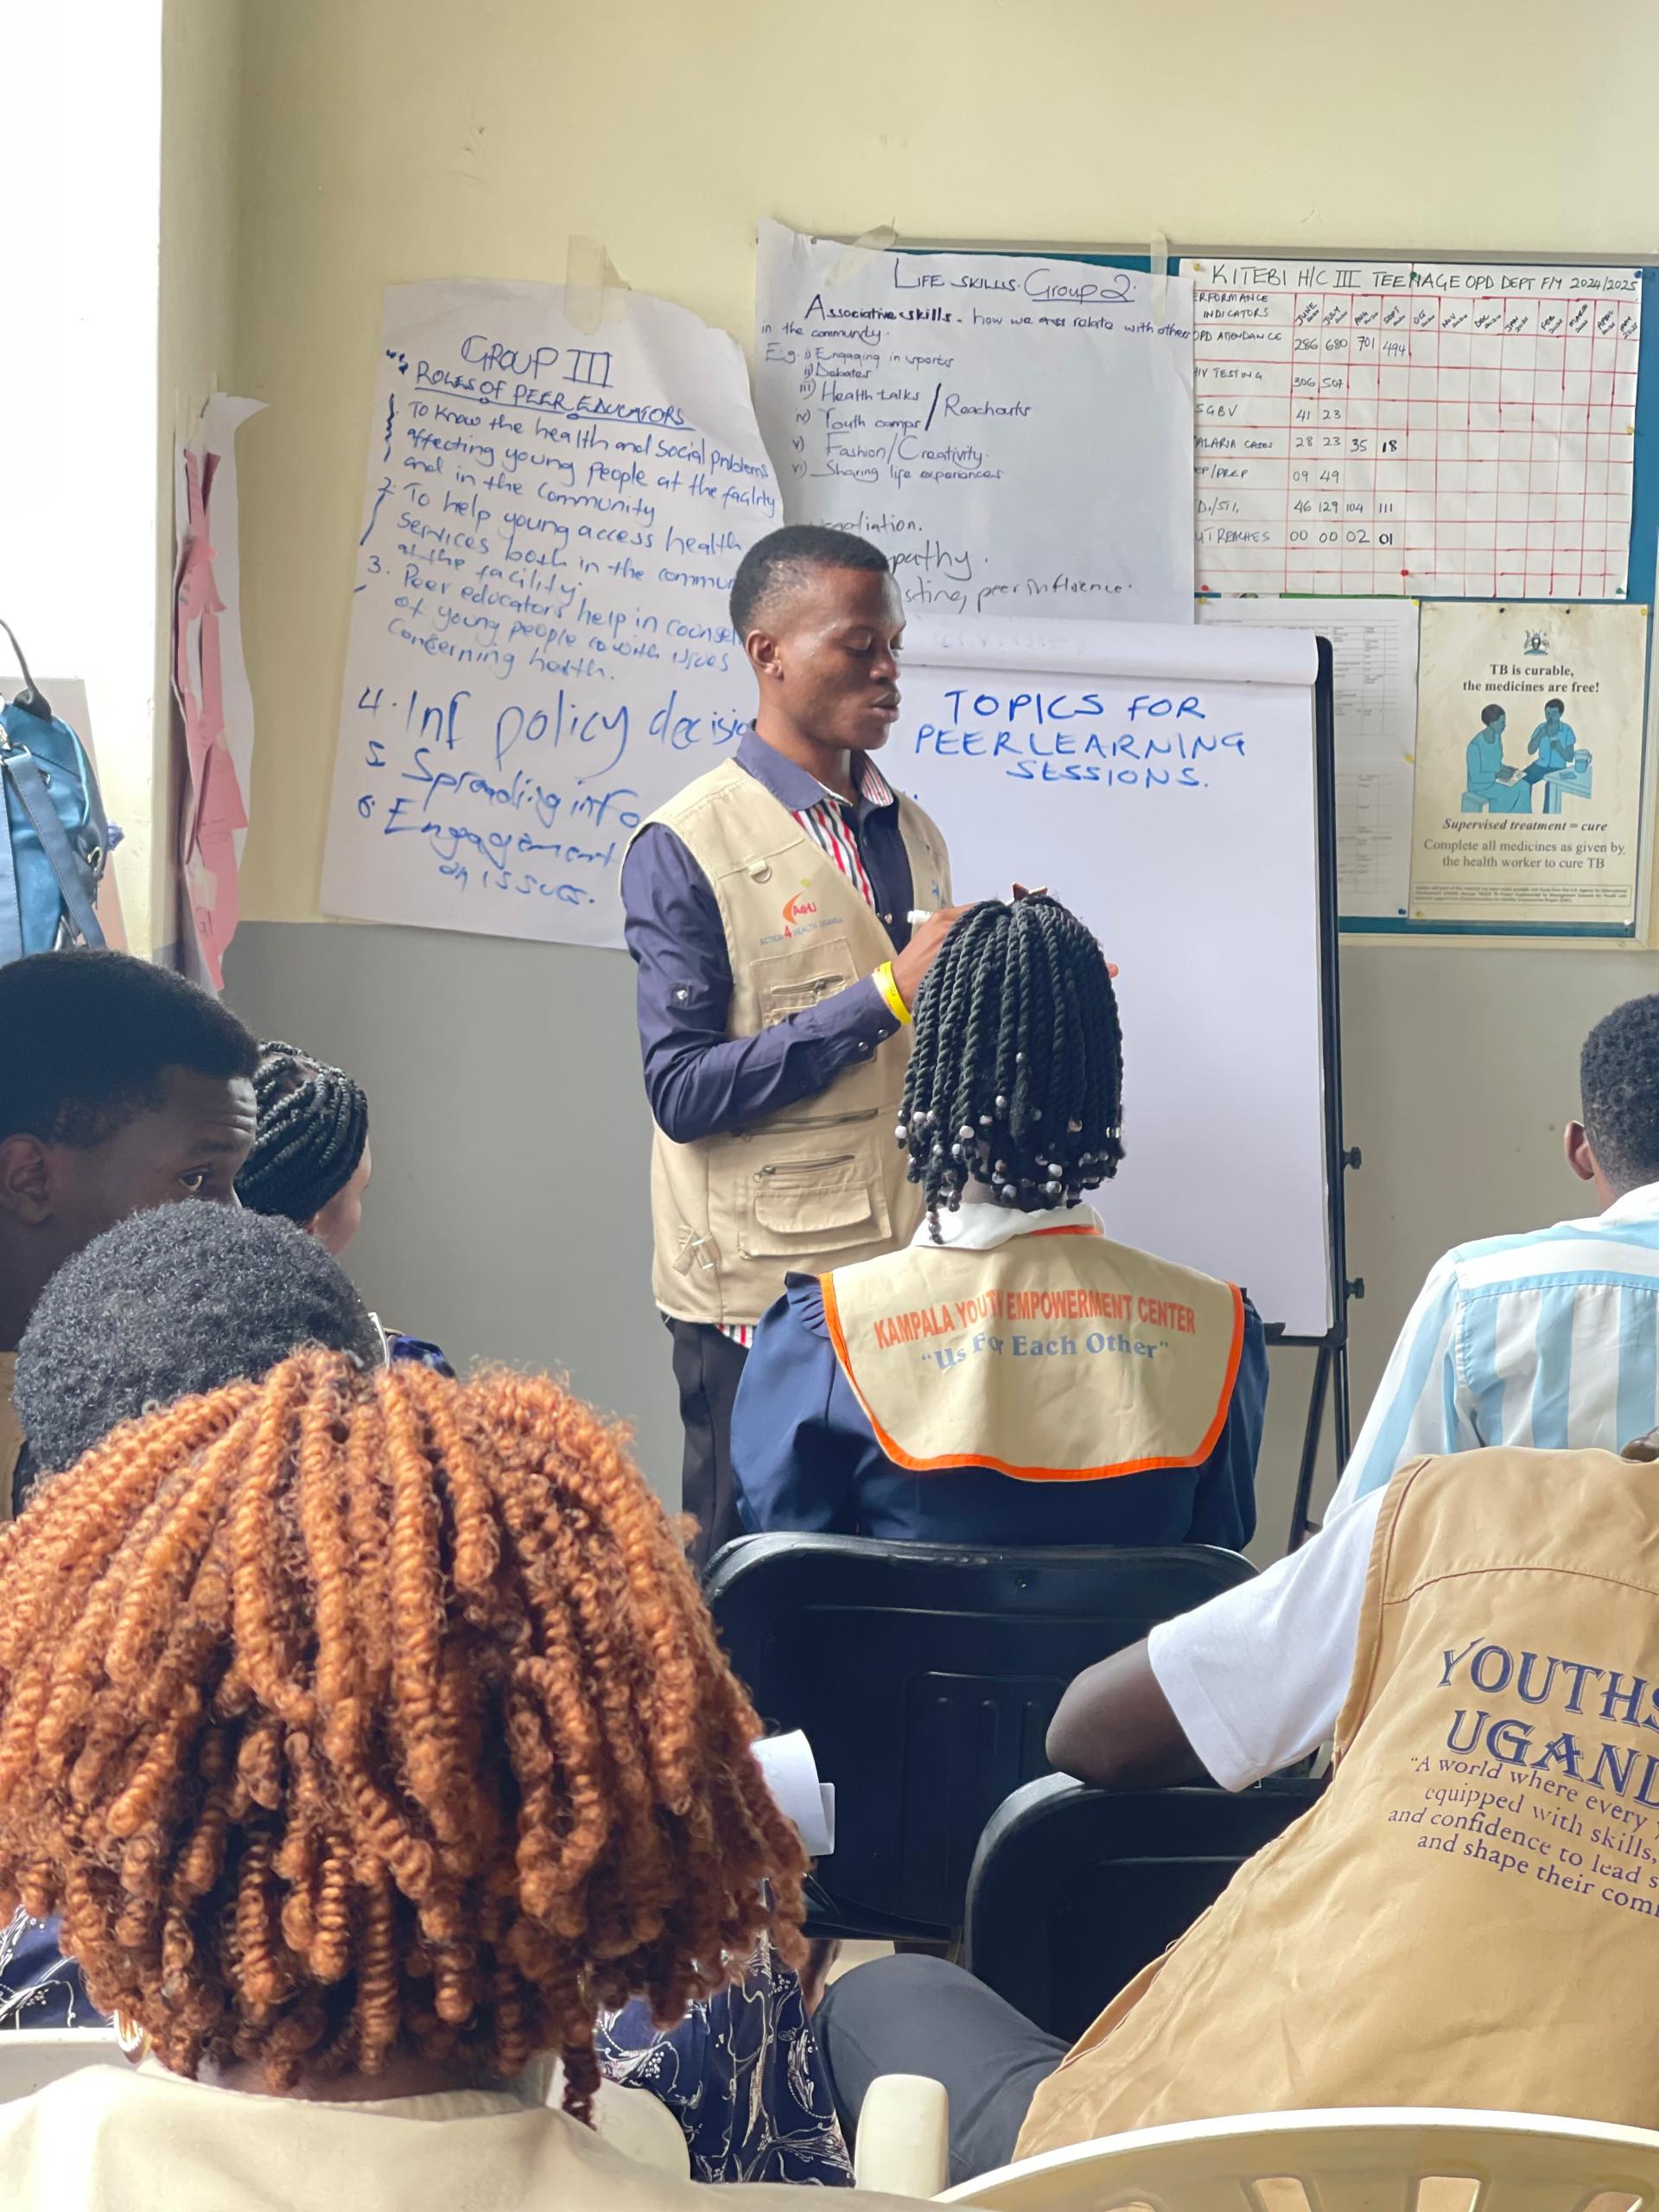 GROUP III
ROLES OF PEER EDUCATORS
1. To know the health and social problems
affecting young people at the facility
and in the community
2. To help young access health
services both in the commu
at the facility.
3. Peer educators help in counsel
of young people with issues
concerning health.
4. Inf policy decisio
5 Spreading info
6. Engagement
on issues.
LIFE SKILLS. Group 2.
Associative skills - how we relate with others
in the community.
Eg. i) Engaging in sports
ii) Debates
iii) Health talks
iv) Youth camps / Reachouts
v) Fashion/Creativity.
vi) Sharing life experiences
gotiation.
pathy.
sting peer influence.
KITEBI H/C III TEENAGE OPD DEPT F/Y 2024/2025
ERFORMANCE
INDICATORS JUNE JULY AUG SEPT OCT NOV DEC JAN FEB MARCH APRIL MAY
OPD ATTENDANCE 286 680 701 494
HIV TESTING 306 507
SGBV 41 23
MALARIA CASES 28 23 35 18
EP/PREP 09 49
D./STI, 46 129 104 111
UTREACHES 00 00 02 01
TB is curable,
the medicines are free!
Supervised treatment = cure
Complete all medicines as given by
the health worker to cure TB
TOPICS FOR
PEER LEARNING
SESSIONS.
A4HU
ACTION 4 HEALTH UGANDA
KAMPALA YOUTH EMPOWERMENT CENTER
"Us For Each Other"
YOUTHS
UGAND
"A world where every
equipped with skills,
and confidence to lead s
and shape their com